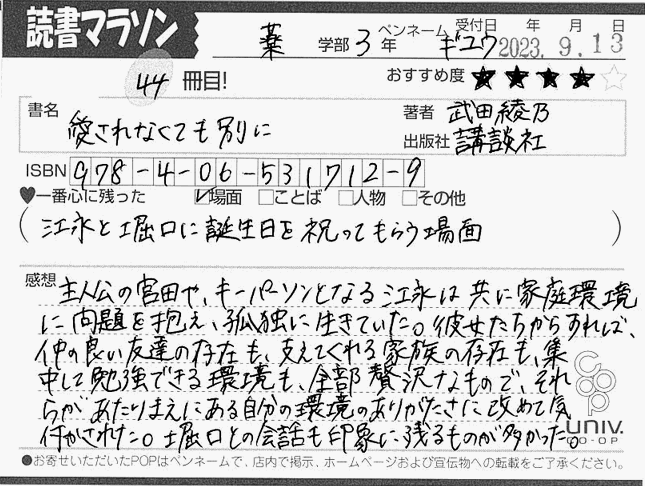 読書マラソン
薬 学部 3 年 ペンネーム ギユウ 受付日 年 月 日 2023. 9. 13
44 冊目! おすすめ度 ★★★★☆
書名 愛されなくても別に 著者 武田綾乃
出版社 講談社
ISBN 978-4-06-531712-9
♥一番心に残った ☑場面 □ことば □人物 □その他
(江永と堀口に誕生日を祝ってもらう場面)
感想 主人公の宮田や、キーパーソンとなる江永は共に家庭環境
に問題を抱え、孤独に生きていた。彼女たちからすれば、
仲の良い友達の存在も、支えてくれる家族の存在も、集
中して勉強できる環境も、全部贅沢なもので、それ
らがあたりまえにある自分の環境のありがたさに改めて気
付かされた。堀口との会話も印象に残るものが多かった。
coop UNIV. CO-OP
●お寄せいただいたPOPはペンネームで、店内で掲示、ホームページおよび宣伝物への転載をご了承ください。